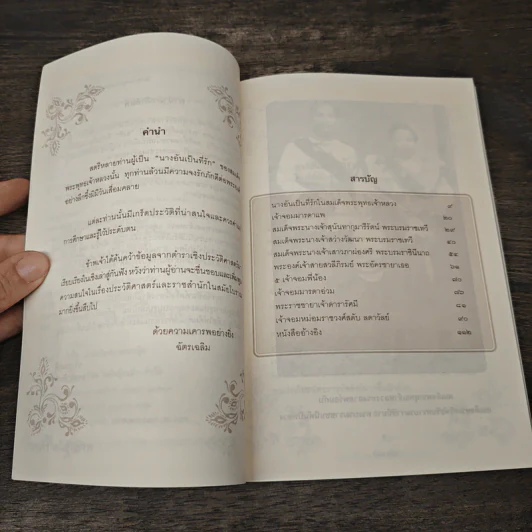 คำนำ
สตรีหลายท่านผู้เป็น "นางอันเป็นที่รัก" ของสมเด็จ
พระพุทธเจ้าหลวงนั้น ทุกท่านล้วนมีความจงรักภักดีต่อพระองค์
อย่างลึกซึ้งมิมีวันเสื่อมคลาย
แต่ละท่านนั้นมีเกร็ดประวัติที่น่าสนใจและควรค่าแก่
การศึกษาและรู้ไว้ประดับตน
ข้าพเจ้าได้ค้นคว้าข้อมูลจากตำราเชิงประวัติศาสตร์
เรียบเรียงในเชิงเล่าสู่กันฟัง หวังว่าท่านผู้อ่านจะชื่นชอบและเพิ่มพูน
ความสนใจในเรื่องประวัติศาสตร์และราชสำนักในสมัยโบราณ
มากยิ่งขึ้นสืบไป
ด้วยความเคารพอย่างยิ่ง
ฉัตรเฉลิม
สารบัญ
นางอันเป็นที่รักในสมเด็จพระพุทธเจ้าหลวง ๙
เจ้าจอมมารดาแพ ๒๐
สมเด็จพระนางเจ้าสุนันทากุมารีรัตน์ พระบรมราชเทวี ๒๙
สมเด็จพระนางเจ้าสว่างวัฒนา พระบรมราชเทวี
สมเด็จพระนางเจ้าเสาวภาผ่องศรี พระบรมราชินีนาถ ๕๕
พระองค์เจ้าสายสวลีภิรมย์ พระอัครชายาเธอ ๖๑
๕ เจ้าจอมพี่น้อง
เจ้าจอมมารดาอ่วม
พระราชชายาเจ้าดารารัศมี
เจ้าจอมหม่อมราชวงศ์สดับ ลดาวัลย์
หนังสืออ้างอิง ๑๑๒